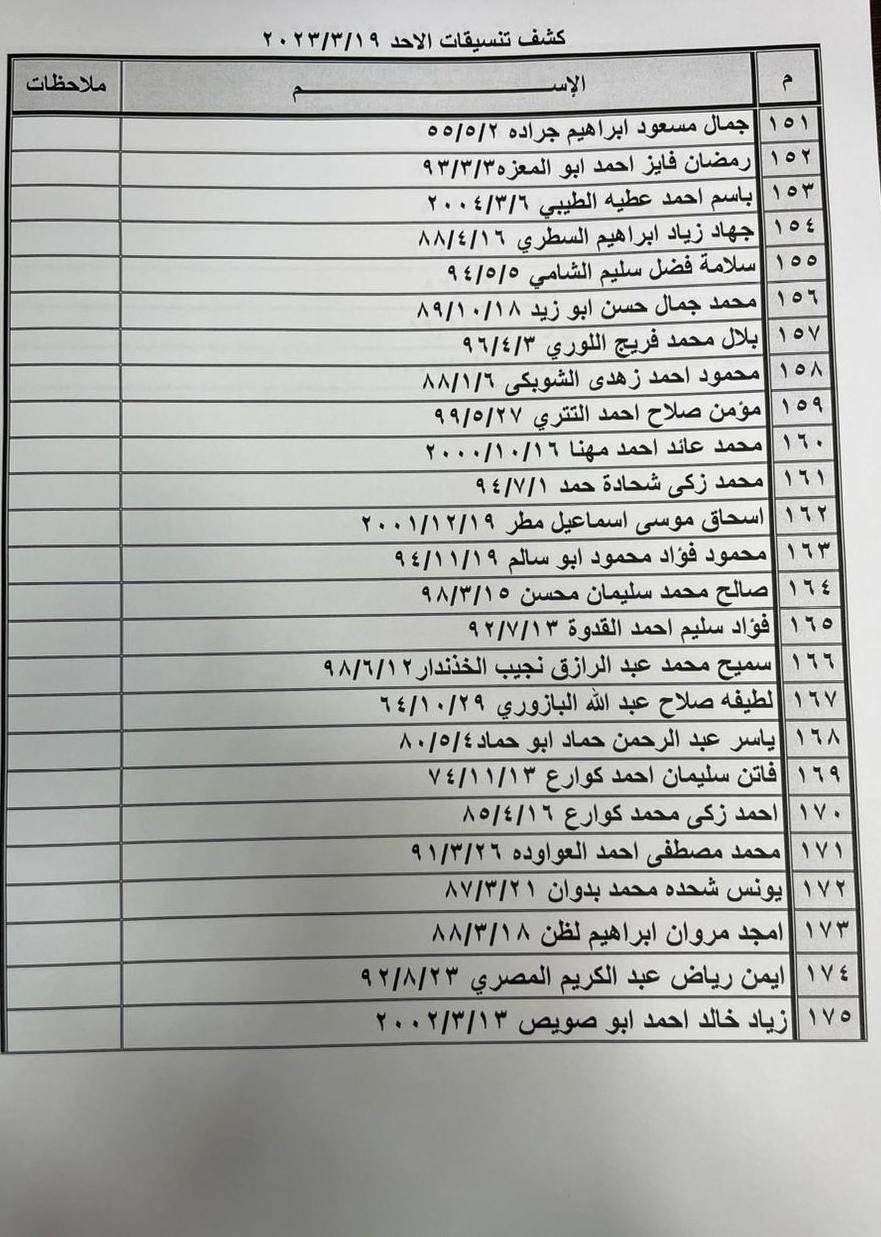 كشف تنسيقات الاحد ٢٠٢٣/٣/١٩
م الإســـــــــــــــــــــــــم ملاحظات
١٥١ جمال مسعود ابراهيم جراده ٥٥/٥/٢
١٥٢ رمضان فايز احمد ابو المعزه٩٣/٣/٣
١٥٣ باسم احمد عطيه الطيبي ٢٠٠٤/٣/٦
١٥٤ جهاد زياد ابراهيم السطري ٨٨/٤/١٦
١٥٥ سلامة فضل سليم الشامي ٩٤/٥/٥
١٥٦ محمد جمال حسن ابو زيد ٨٩/١٠/١٨
١٥٧ بلال محمد فريج اللوري ٩٦/٤/٣
١٥٨ محمود احمد زهدى الشوبكى ٨٨/١/٦
١٥٩ مؤمن صلاح احمد التتري ٩٩/٥/٢٧
١٦٠ محمد عائد احمد مهنا ٢٠٠٠/١٠/١٦
١٦١ محمد زكى شحادة حمد ٩٤/٧/١
١٦٢ اسحاق موسى اسماعيل مطر ٢٠٠١/١٢/١٩
١٦٣ محمود فؤاد محمود ابو سالم ٩٤/١١/١٩
١٦٤ صالح محمد سليمان محسن ٩٨/٣/١٥
١٦٥ فؤاد سليم احمد القدوة ٩٢/٧/١٣
١٦٦ سميح محمد عبد الرازق نجيب الخذندار٩٨/٦/١٢
١٦٧ لطيفه صلاح عبد الله البازوري ٦٤/١٠/٢٩
١٦٨ ياسر عبد الرحمن حماد ابو حماد٨٠/٥/٤
١٦٩ فاتن سليمان احمد كوارع ٧٤/١١/١٣
١٧٠ احمد زكى محمد كوارع ٨٥/٤/١٦
١٧١ محمد مصطفى احمد العواوده ٩١/٣/٢٦
١٧٢ يونس شحده محمد بدوان ٨٧/٣/٢١
١٧٣ امجد مروان ابراهيم لظن ٨٨/٣/١٨
١٧٤ ايمن رياض عبد الكريم المصري ٩٢/٨/٢٣
١٧٥ زياد خالد احمد ابو صويص ٢٠٠٢/٣/١٣